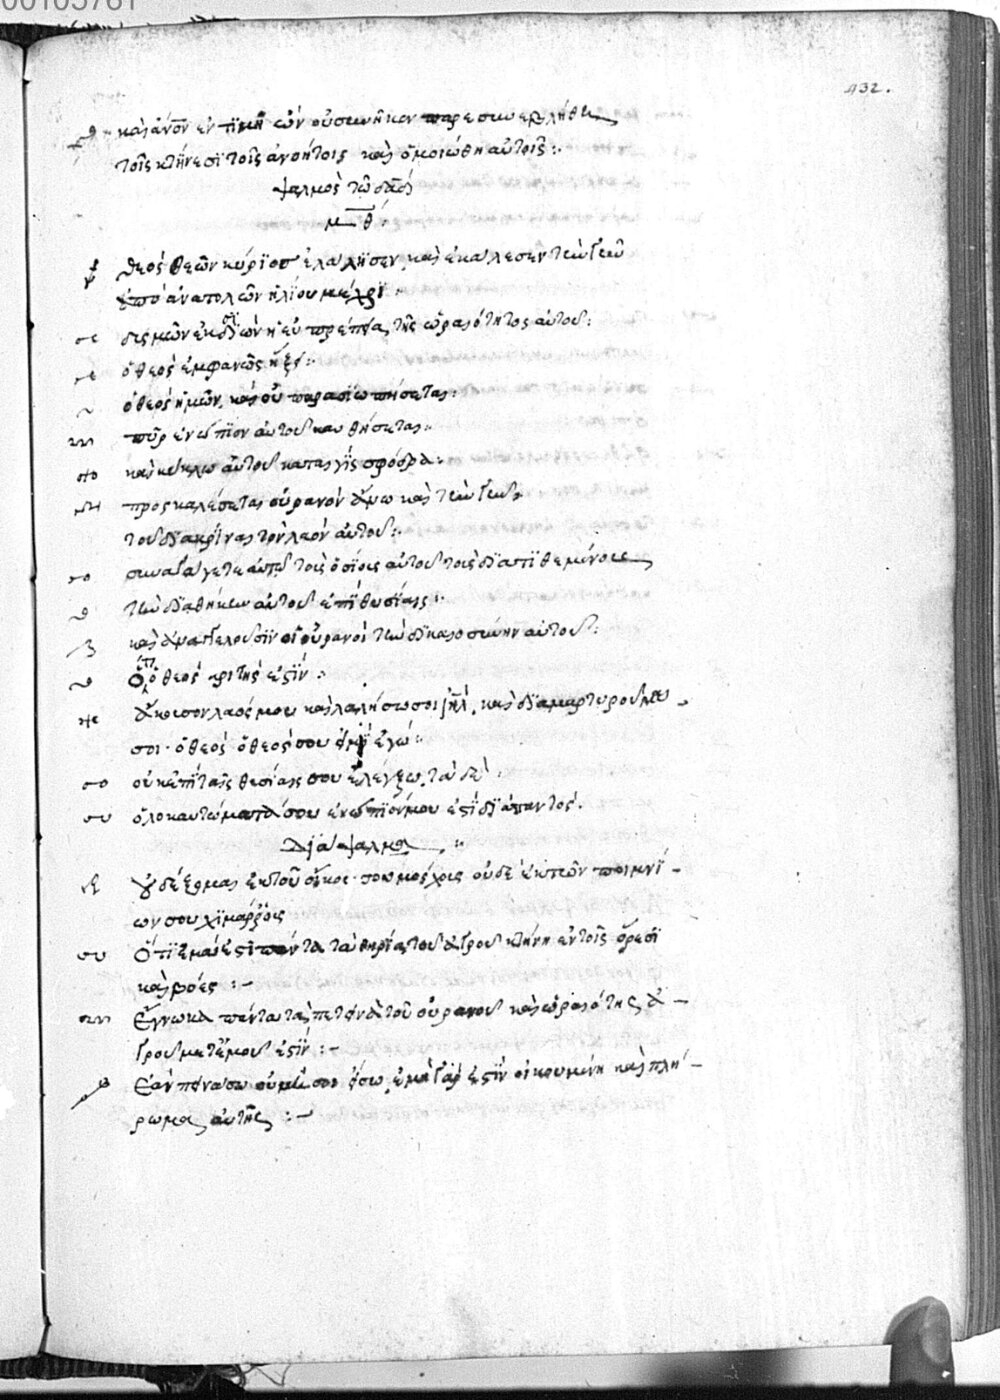 00105781
432.
καὶ ἄν̅ο̅ς̅ ἐν τϊμῆ ὢν οὐ συνῆκεν παρεσυνεβλήθη
τοῖς κτήνεσϊ τοῖς ἀνοήτοις καὶ ὁμοιώθη αὐτοῖς:
ψαλμὸς τῶ ἀσάφ
μθ
θεὸς θεῶν κύριος ἐλάλησεν, καὶ ἐκάλεσεν τὴν γῆν
ἀπὸ ἀνατολῶν ἡλίου μέχρϊ
δυσμῶν ἐκ σϊὼν ἡ εὐπρέπεια τῆς ὡραιότητος αὐτοῦ:
ὁ θεὸς ἐμφανῶς ἥξει:
ὁ θεὸς ἡμῶν, καὶ οὐ παρασιωπήσεται:
πῦρ ἐνώπϊον αὐτοῦ καυθήσεται:
καὶ κύκλω αὐτοῦ καταιγὶς σφόδρα:
προσκαλέσεται οὐρανὸν ἄνω καὶ τὴν γῆν,
τοῦ διακρῖναι τὸν λαὸν αὐτοῦ:
συναγάγετε αὐτῶ τοὺς ὁσίους αὐτοῦ τοὺς διατϊθεμένους
τὴν διαθήκην αὐτοῦ ἐπὶ θυσίαις:
καὶ ἀναγγελοῦσϊν οἱ οὐρανοὶ τὴν δικαιοσύνην αὐτοῦ:
ὅτι ὁ θεὸς κριτής ἐστϊν:
ἄκουσον λαός μου καὶ λαλήσω σοι ἰ̅η̅λ̅, καὶ διαμαρτυροῦμαι
σοι· ὁ θεὸς ὁ θεός σου εἰμὶ ἐγώ:
οὐκ ἐπὶ ταῖς θυσίαις σου ἐλέγξω, τὰ δὲ
ὁλοκαυτώματά σου ἐνώπϊόν μου ἐστὶ διαπαντός.
Διάψαλμα
οὐ δέξομαι ἐκ τοῦ οἴκου σου μόσχους οὐδὲ ἐκ τῶν ποιμνί-
ων σου χϊμάρρους
Ὅτι ἐμά ἐστι πάντα τὰ θηρία τοῦ ἀγροῦ κτήνη ἐν τοῖς ὄρεσϊ
καὶ βόες:-
Ἔγνωκα πάντα τὰ πετεινὰ τοῦ οὐρανοῦ καὶ ὡραιότης ἀ-
γροῦ μετ' ἐμοῦ ἐστϊν:-
Ἐὰν πεινάσω οὐ μή σοι εἴπω, ἐμὴ γάρ ἐστϊν οἰκουμένη καὶ πλή-
ρωμα αὐτῆς:-